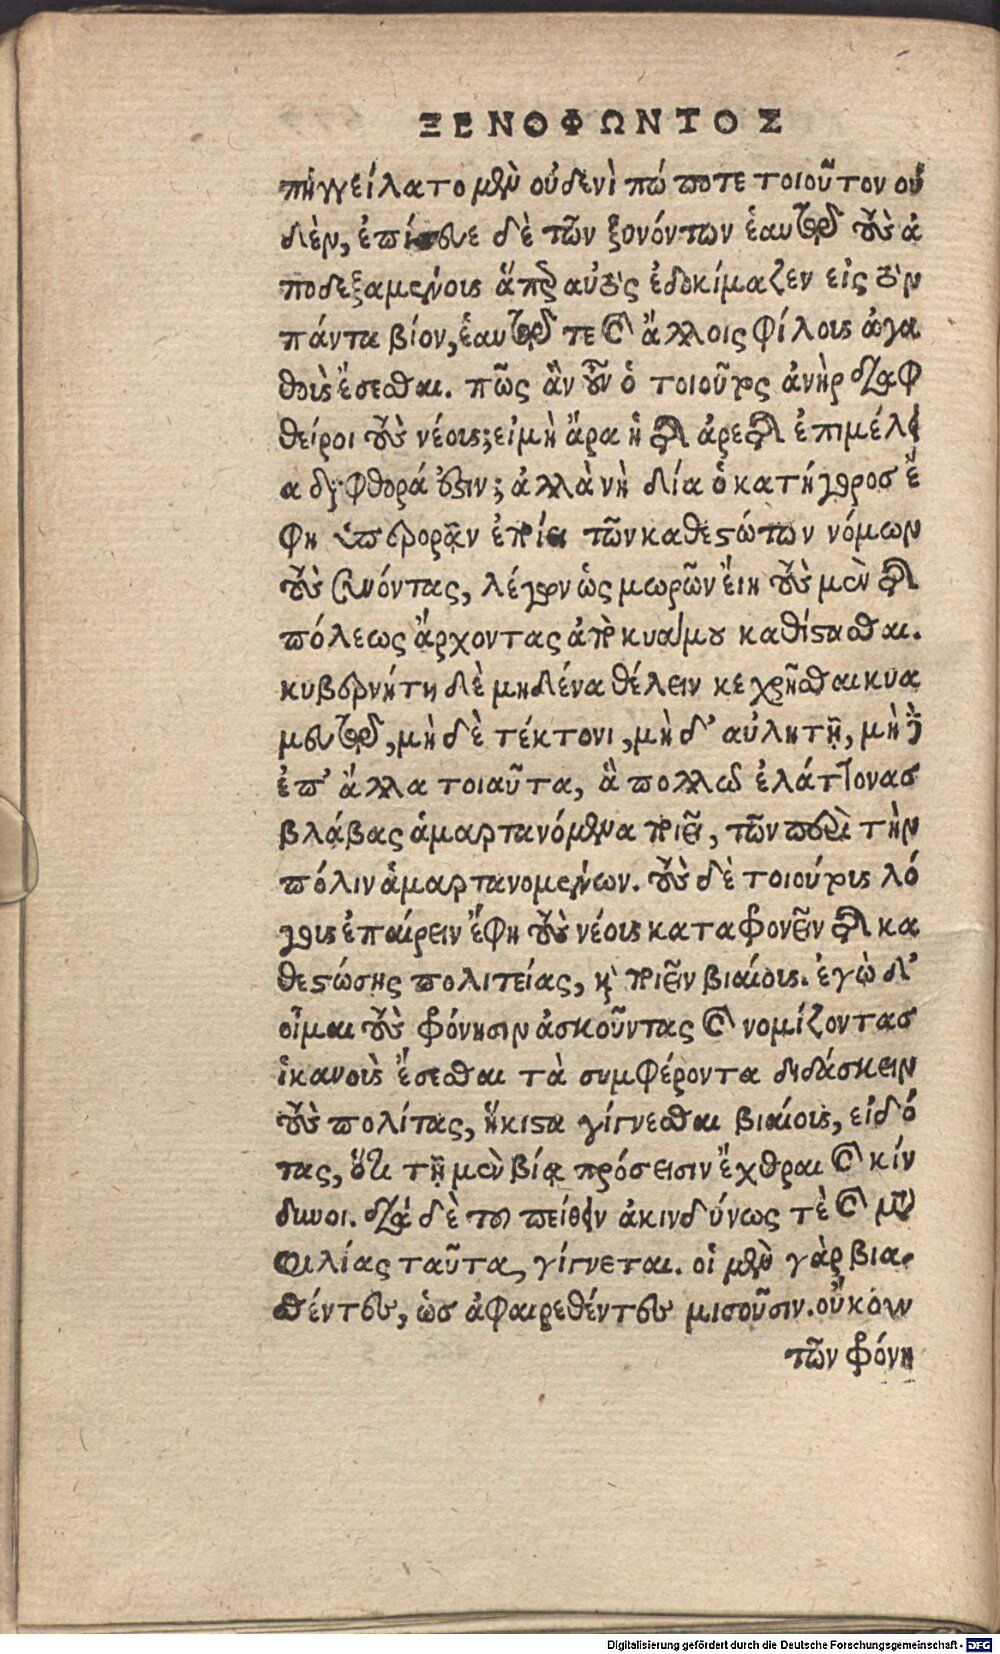 ΞΕΝΟΦΩΝΤΟΣ
πηγγείλατο μὲν οὐδενὶ πώποτε τοιοῦτον οὐ
δὲν, ἐπίστευε δὲ τῶν ξυνόντων ἑαυτῷ τοὺς ἀ
ποδεξαμένους ἅπερ αὐτὸς ἐδοκίμαζεν εἰς τὸν
πάντα βίον, ἑαυτῷ τε καὶ ἄλλοις φίλους ἀγα
θοὺς ἔσεσθαι. πῶς ἂν οὖν ὁ τοιοῦτος ἀνὴρ διαφ
θείροι τοὺς νέους; εἰ μὴ ἄρα ἡ τῆς ἀρετῆς ἐπιμέλει
α διαφθορά ἐστιν; ἀλλὰ νὴ δία ὁ κατήγορος ἔ
φη ὑπερορᾶν ἐποίει τῶν καθεστώτων νόμων
τοὺς συνόντας, λέγων ὡς μωρῶν εἴη τοὺς μὲν τῆς
πόλεως ἄρχοντας ἀπὸ κυάμου καθίστασθαι.
κυβερνήτῃ δὲ μηδένα θέλειν κεχρῆσθαι κυα
μευτῷ, μὴ δὲ τέκτονι, μὴ δ' αὐλητῇ, μὴ δ'
ἐπ' ἄλλα τοιαῦτα, ἃ πολλῷ ἐλάττονας
βλάβας ἁμαρτανόμενα ποιεῖ, τῶν περὶ τὴν
πόλιν ἁμαρτανομένων. τοὺς δὲ τοιούτους λό
γους ἐπαίρειν ἔφη τοὺς νέους καταφρονεῖν τῆς κα
θεστώσης πολιτείας, καὶ ποιεῖν βιαίους. ἐγὼ δ'
οἶμαι τοὺς φρόνησιν ἀσκοῦντας καὶ νομίζοντας
ἱκανοὺς ἔσεσθαι τὰ συμφέροντα διδάσκειν
τοὺς πολίτας, ἥκιστα γίγνεσθαι βιαίους, εἰδό
τας, ὅτι τῇ μὲν βίᾳ πρόσεισιν ἔχθραι καὶ κίν
δυνοι. διὰ δὲ τοῦ πείθειν ἀκινδύνως τὲ καὶ μετὰ
φιλίας ταῦτα γίγνεται. οἱ μὲν γὰρ βια
σθέντες, ὡς ἀφαιρεθέντες μισοῦσιν. οὔκουν
τῶν φρόνη
Digitalisierung gefördert durch die Deutsche Forschungsgemeinschaft - DFG